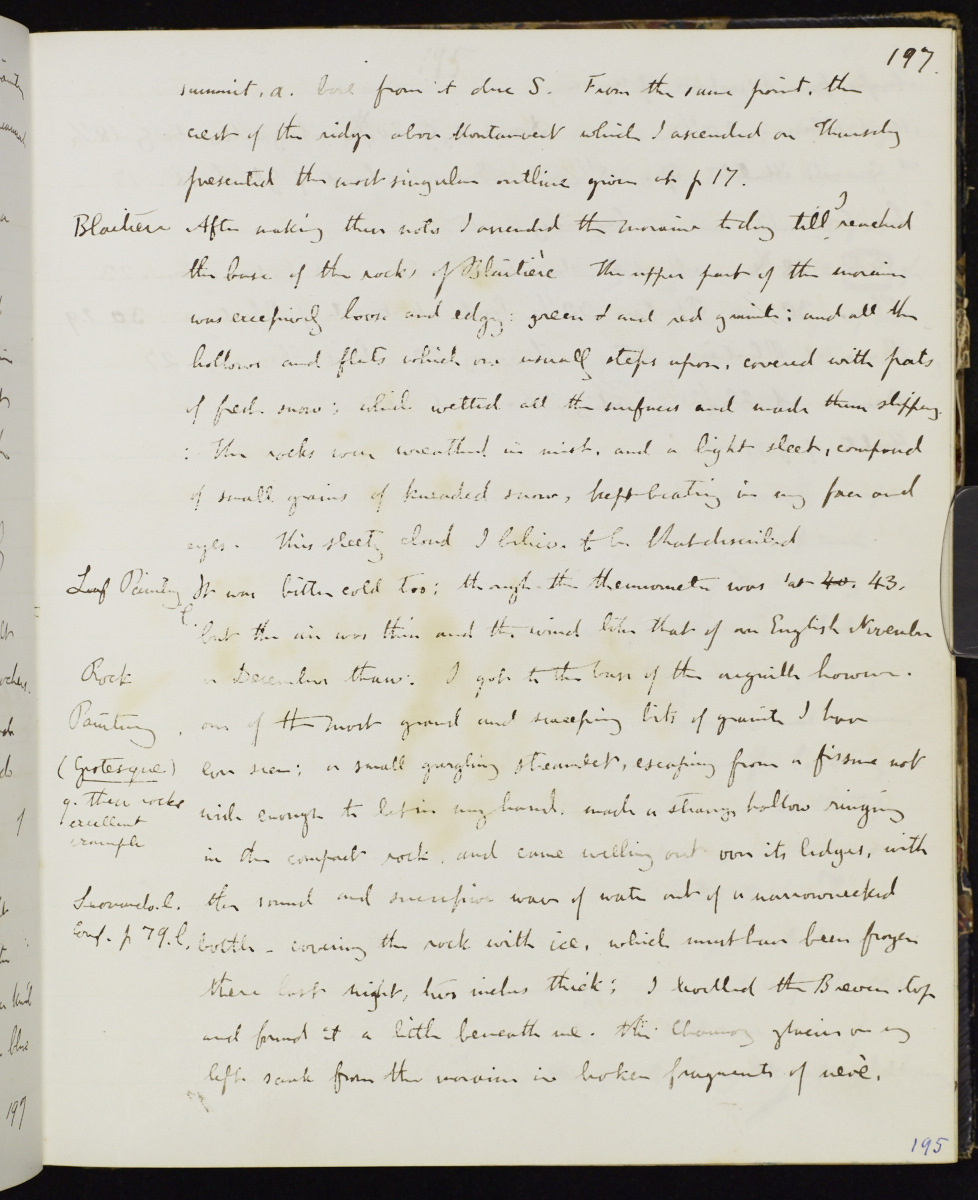 197.
summit, a. bore from it due S. From the same point, the
crest of the ridge above Montanvert which I ascended on Thursday
presented the most singular outline given at p 17.
Blaitiere After making these notes I ascended the moraine today till I reached
the base of the rocks of Blaitière The upper part of the moraine
was excessively loose and edgy: green & and red granite: and all the
hollows and flats which one usually steps upon, covered with pats
of fresh snow; which wetted all the surfaces and made them slippery.
: the rocks were wreathed in mist, and a light sleet, composed
of small grains of kneaded snow, kept beating in my face and
eyes. This sleety cloud I believe to be that described
Leaf Painting It was bitter cold too; though the thermometer was at 40. 43.
but the air was thin and the wind like that of an English November
Rock or December thaw. I got to the base of the aiguille however.
Painting, one of the most grand and sweeping bits of granite I have
(Grotesque) ever seen; a small gurgling streamlet, escaping from a fissure not
q. these rocks excellent example wide enough to let in my hand. made a strange hollow ringing
in the compact rock, and came welling out over its ledges, with
Leonardo. l. the sound and successive wave of water out of a narrownecked
Conf. p 79. l. bottle - covering the rock with ice, which must have been frozen
there last night, two inches thick; I levelled the Breven top
and found it a little beneath me. the Chamony glacier on my
left sank from the moraine in broken fragments of nevè.
195